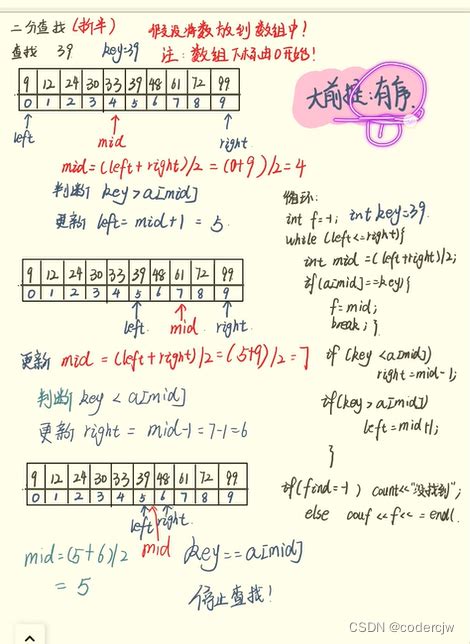 二分查找(折半) 假设没将数放到数组中!
查找 39 key=39 注:数组下标由0开始!
9 12 24 30 33 39 48 61 72 99
0 1 2 3 4 5 6 7 8 9
left mid right
大前提:有序.
mid=(left+right)/2=(0+9)/2=4
判断 key>a[mid]
更新 left=mid+1=5
9 12 24 30 33 39 48 61 72 99
0 1 2 3 4 5 6 7 8 9
left mid right
更新 mid=(left+right)/2=(5+9)/2=7
判断 key<a[mid]
更新 right=mid-1=7-1=6
9 12 24 30 33 39 48 61 72 99
0 1 2 3 4 5 6 7 8 9
left mid right
mid=(5+6)/2 key==a[mid]
=5
停止查找!
循环:
int f=-1; int key=39.
while(left<=right){
int mid=(left+right)/2;
if(a[mid]==key){
f=mid;
break;}
if(key<a[mid])
right=mid-1;
if(key>a[mid])
left=mid+1;
}
if(find=-1) count<<"没找到";
else couf<<f<<=endl.
CSDN @codercjw